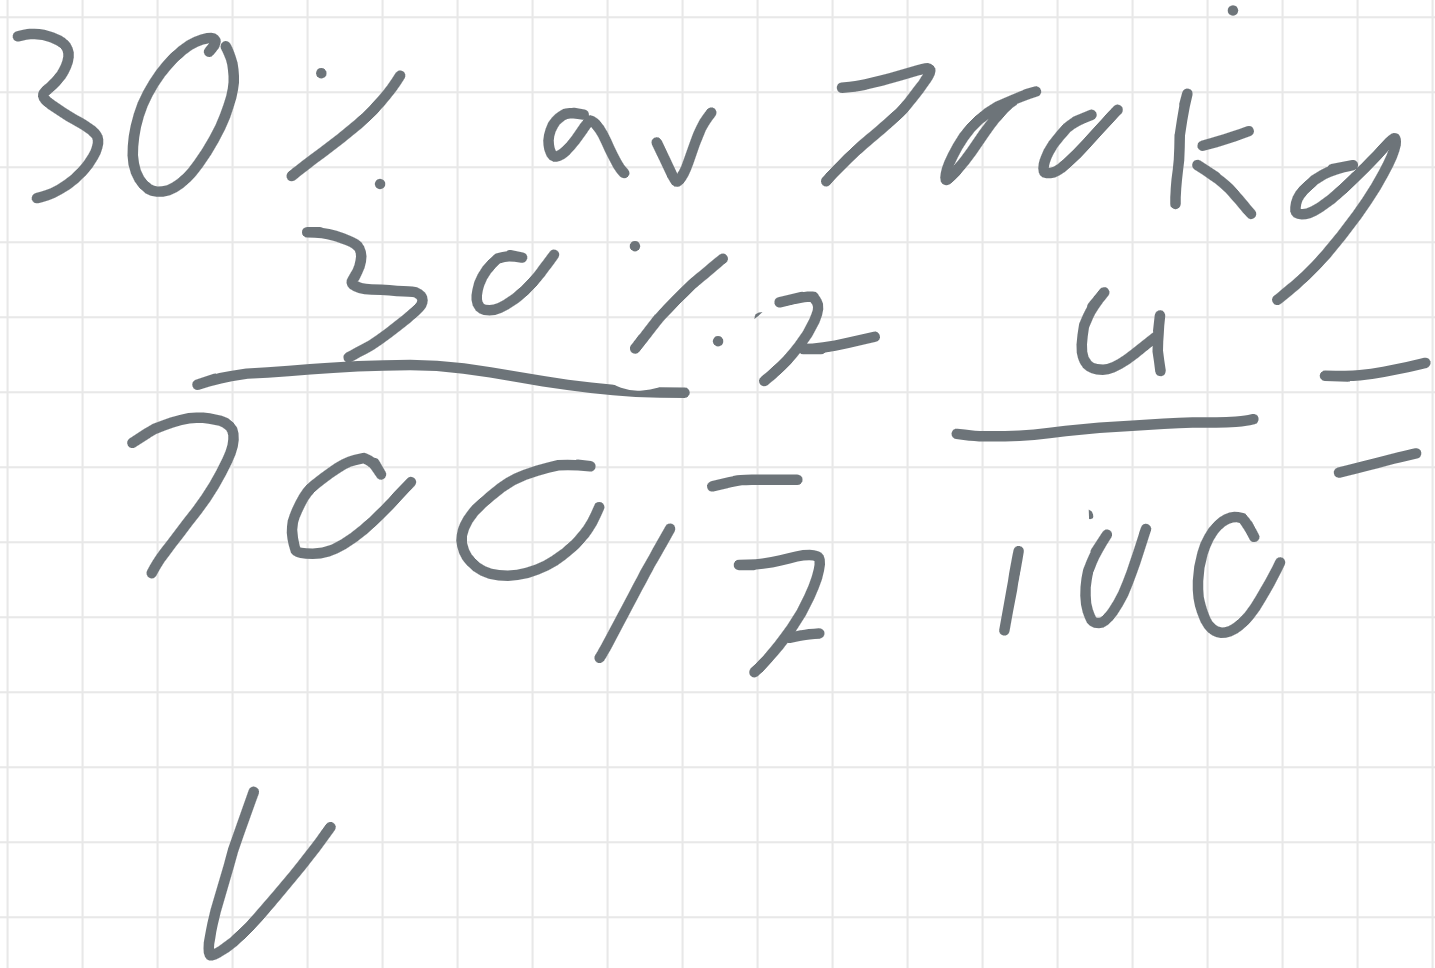 30% av 700kg
30%.7 4
700/7 = 100 =
V